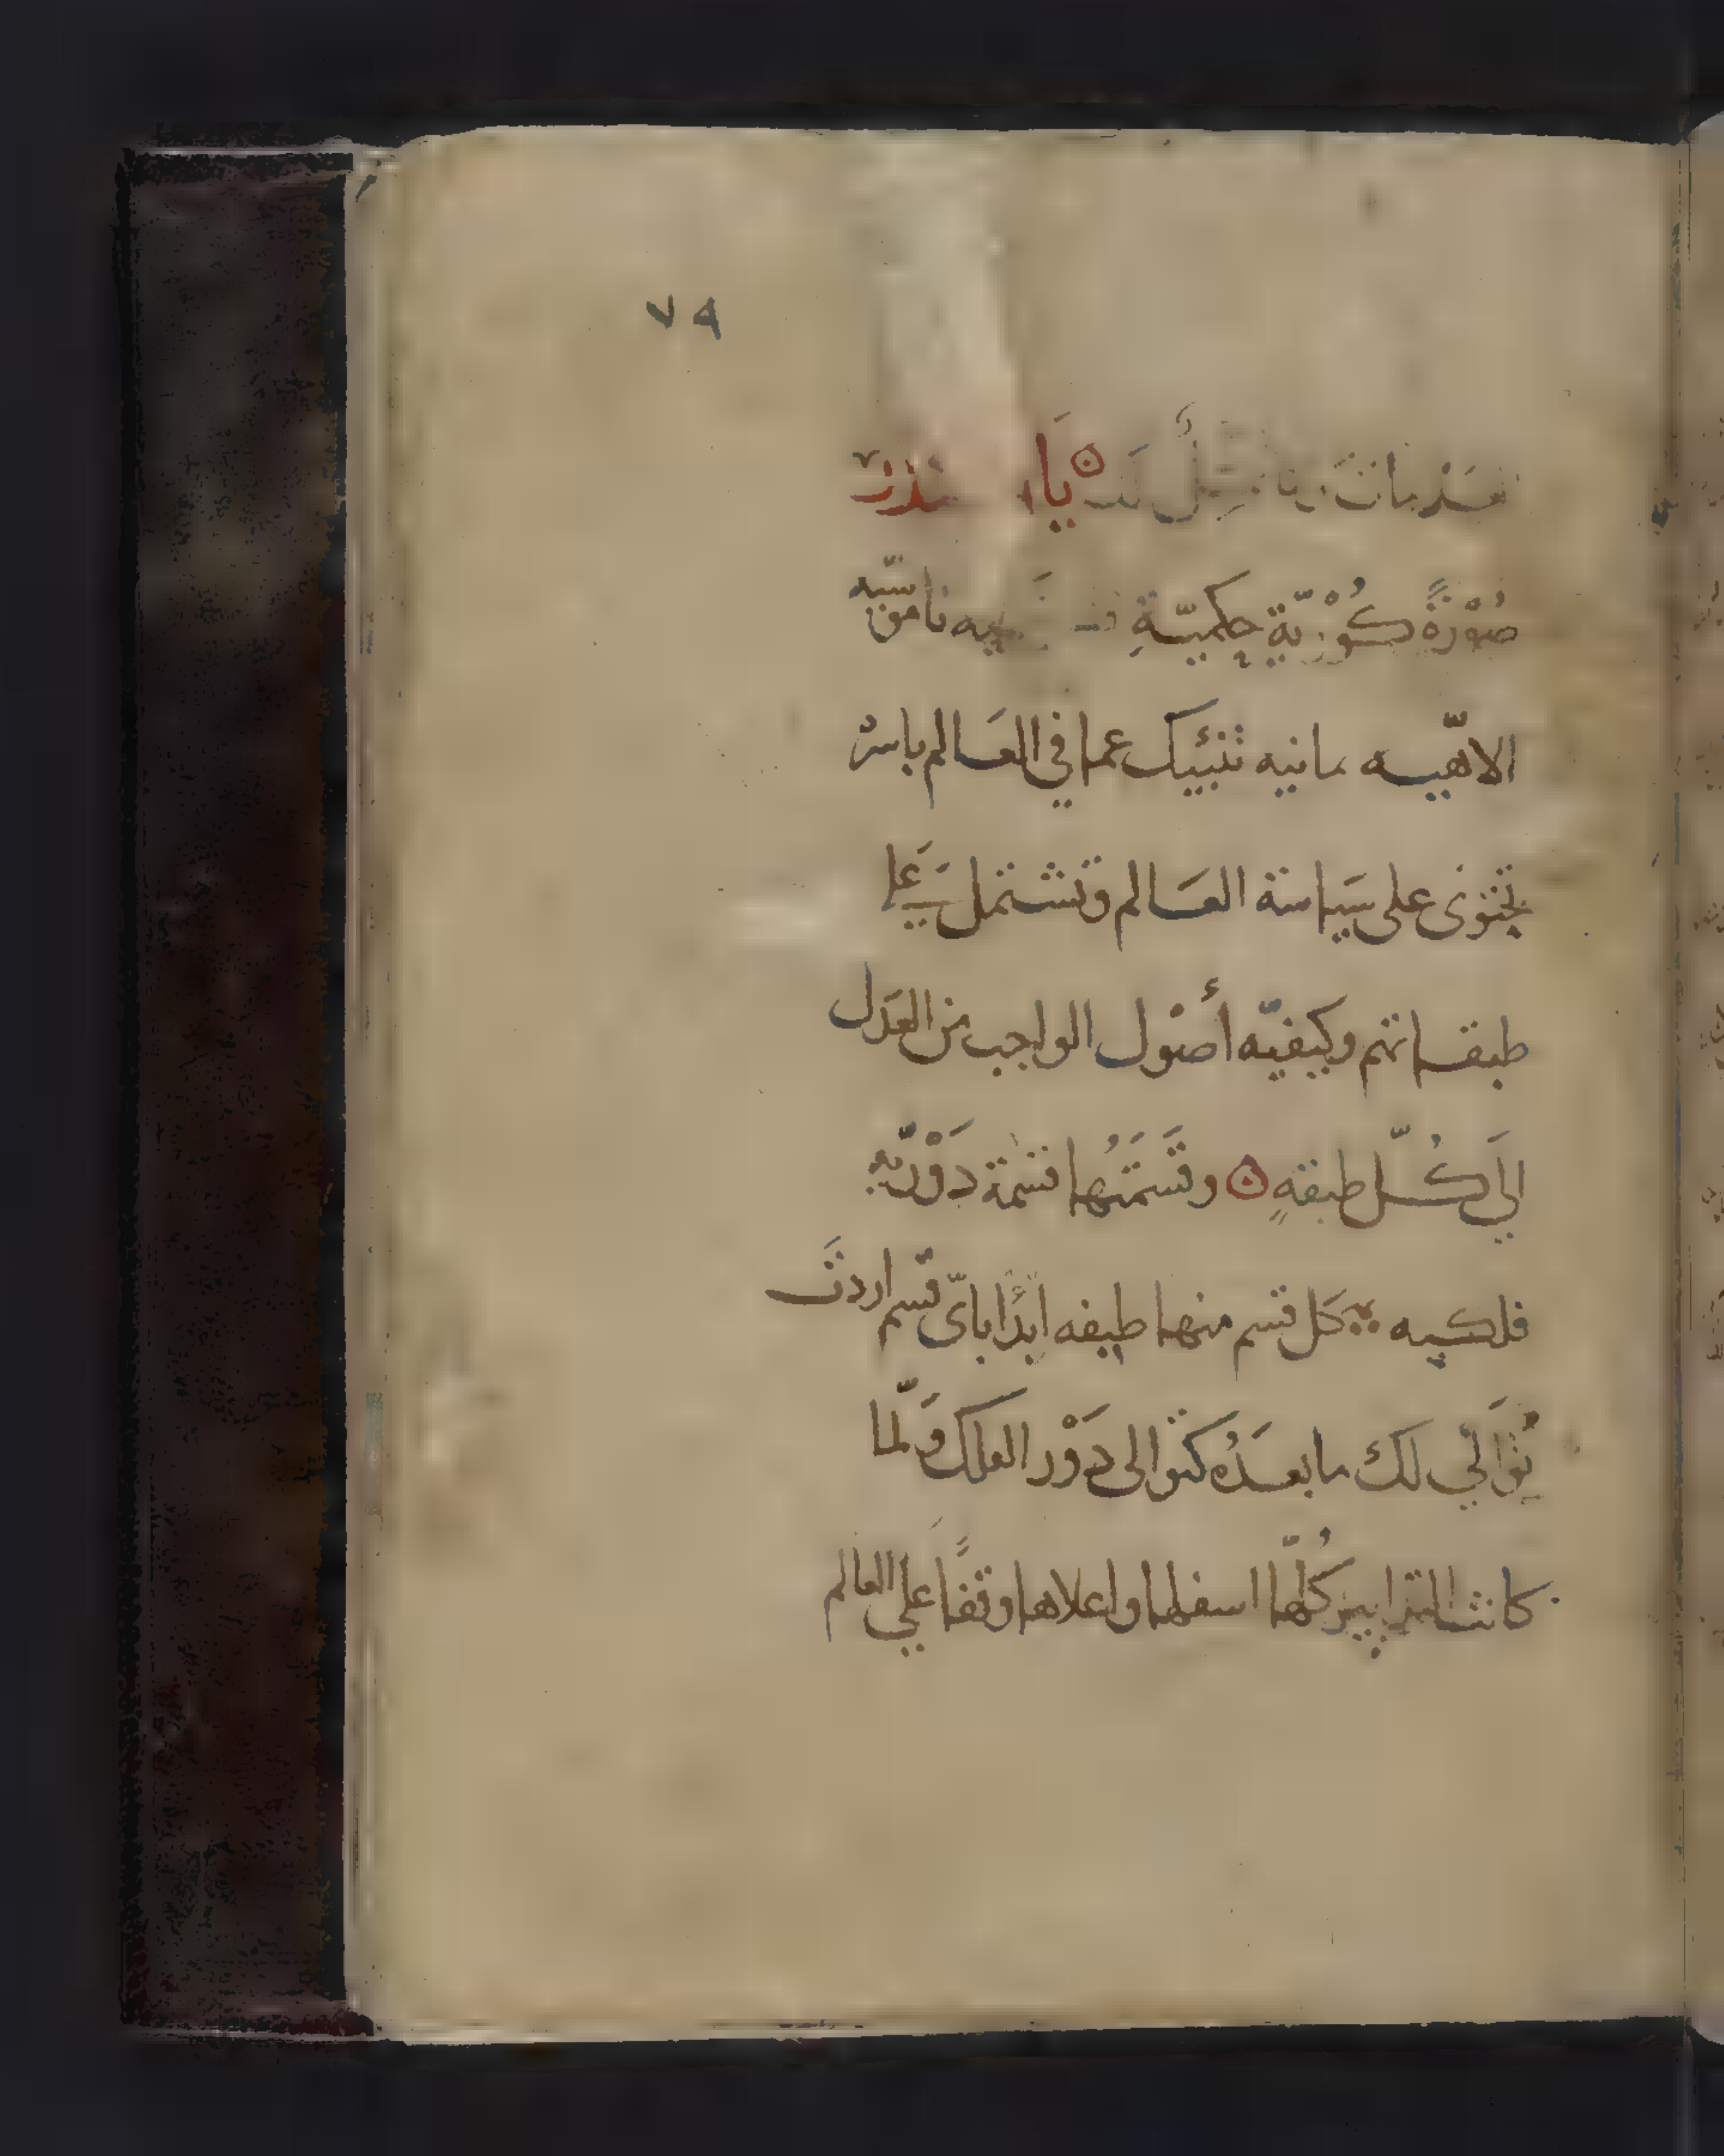 ٧٩
يا
صُوْرَةً حكميّةٍ ناموسّيه
الاهّيه ثمانيه تنبئيك عما في العَالم باسرْ
تحتوى على سَياسة العَالم وتشتمل عَلى
طبقاتهم وكيفيّه أصوْل الواجب من العَدل
الَى كُلّ طبقهٍ ۞ وقَسَمَتُها قسْمة دَوْرّيه
فلكيه كَل قسم منها طبقه ابدًا باىّ قسم اردتَ
تَوَالَي لك ما بعَدُه كتوالى دَوْر الفلك وَلمّا
كانت التدابير كُلّها اسفلها واعلاها وقفًا علي العالم